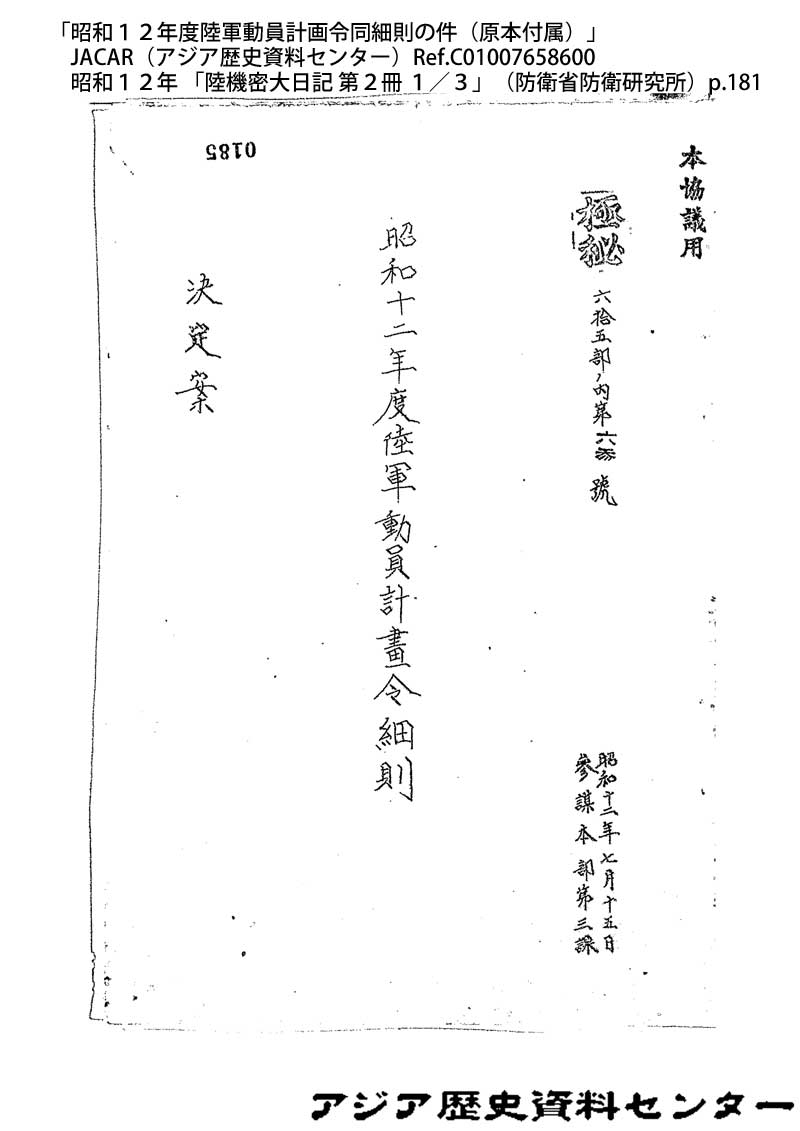 「昭和１２年度陸軍動員計画令同細則の件（原本付属）」
JACAR（アジア歴史資料センター）Ref.C01007658600
昭和１２年「陸機密大日記 第２冊 １／３」（防衛省防衛研究所）p.181
本協議用
極秘
六拾五部ノ内第六参號
昭和十二年七月十五日
參謀本部第三課
昭和十二年度陸軍動員計畫令細則
決定案
0185
アジア歴史資料センター